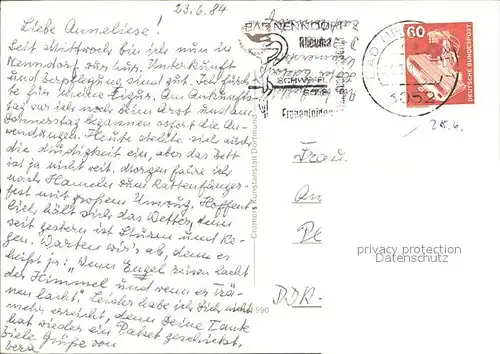 23.6.84
Liebe Anneliese!
Seit Mittwoch bin ich nun in
Nenndorf zur Kur. Unterkunft
und Verpflegung sind gut. Ich fürch-
te für meine Figur. Am Ankunfts-
tag war ich noch beim Arzt und am
Donnerstag begannen sofort die An-
wendungen. Heute stellte sich auch
die Müdigkeit ein, aber das Bett
ist ja nicht weit. Morgen fahre ich
nach Hameln zum Rattenfänger-
fest mit großem Umzug. Hoffent-
lich hält sich das Wetter, denn
seit gestern ist Sturm und Re-
gen. Warten wir's ab, denn es
heißt ja: "Wenn Engel reisen lacht
der Himmel und wenn er Trä-
nen lacht." Leider habe ich Dich nicht
mehr erreicht, denn Deine Tante
hat wieder ein Paket geschickt.
Viele Grüße von
Vera
BAD NENNDORF
Rheuma
SCHWEFEL
Frauenleiden
BAD NE
3052
60
DEUTSCHE BUNDESPOST
28.6.
Cramers Kunstanstalt Dortmund
590
Frau
An
DDR-
privacy protection
Datenschutz